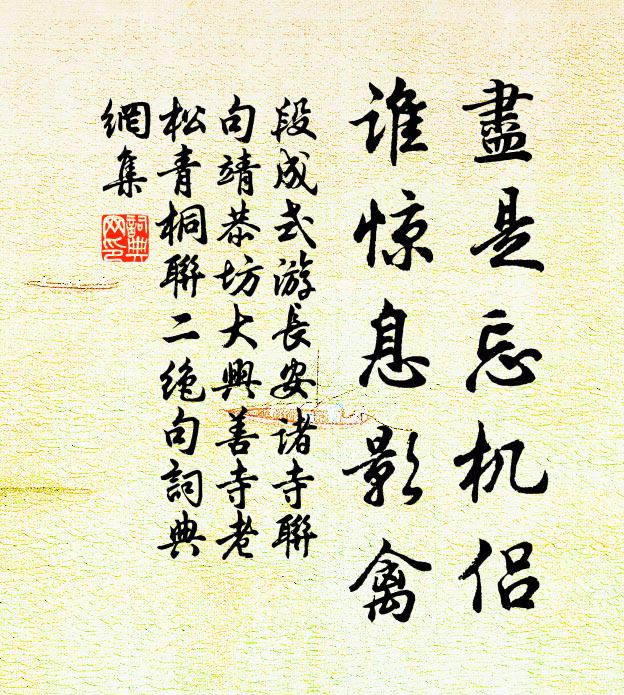 盡是忘机侣
谁惊息影禽
段成式游長安诸寺聯
句靖恭坊大興善寺老
松青桐聯二绝句詞典
網集
詞典網印